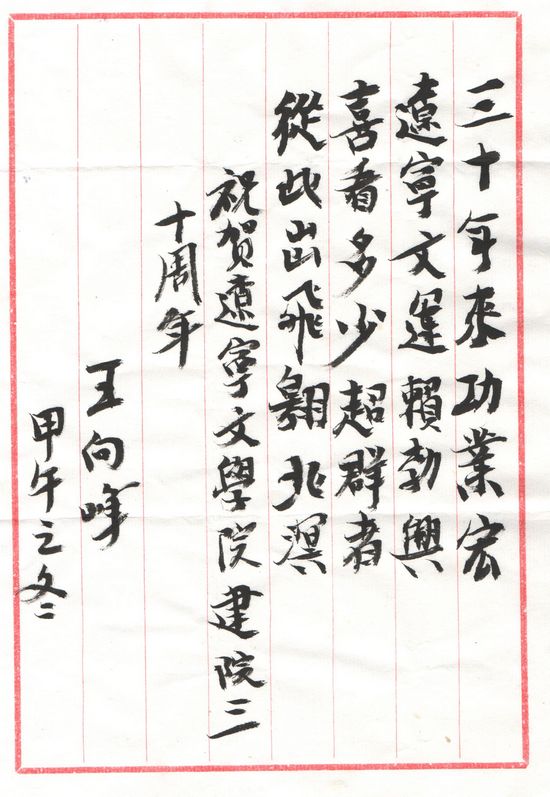 三十年來功業宏
遼寧文運賴勃興
喜看多少超群者
從此出飛翱北溟
祝賀遼寧文學院建院三
十周年
王向峰
甲午之冬